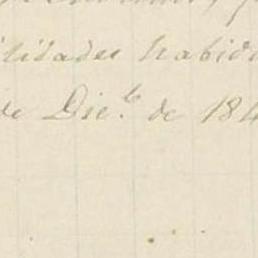 ilidades habid
de Dic.e de 184